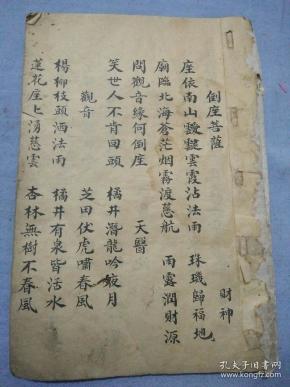 倒座菩薩　財神
座依南山靉靆雲霞沾法雨　珠璣歸福地
廟臨北海蒼茫烟霧渡慈航　雨露潤財源
問觀音緣何倒座　天醫
笑世人不肯回頭　橘井潛龍吟夜月
觀音　芝田伏虎嘯春風
楊柳枝頭洒法雨　橘井有泉皆活水
蓮花座上湧慈雲　杏林無樹不春風
孔夫子旧书网